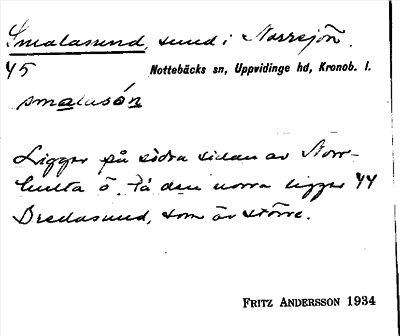 Smalasund, sund i Norrsjön.
45 Nottebäcks sn, Uppvidinge hd, Kronob. l.
smalasón
Ligger på södra sidan av Norr-
hulta ö. På den norra ligger 44
Bredasund, som är större.
FRITZ ANDERSSON 1934